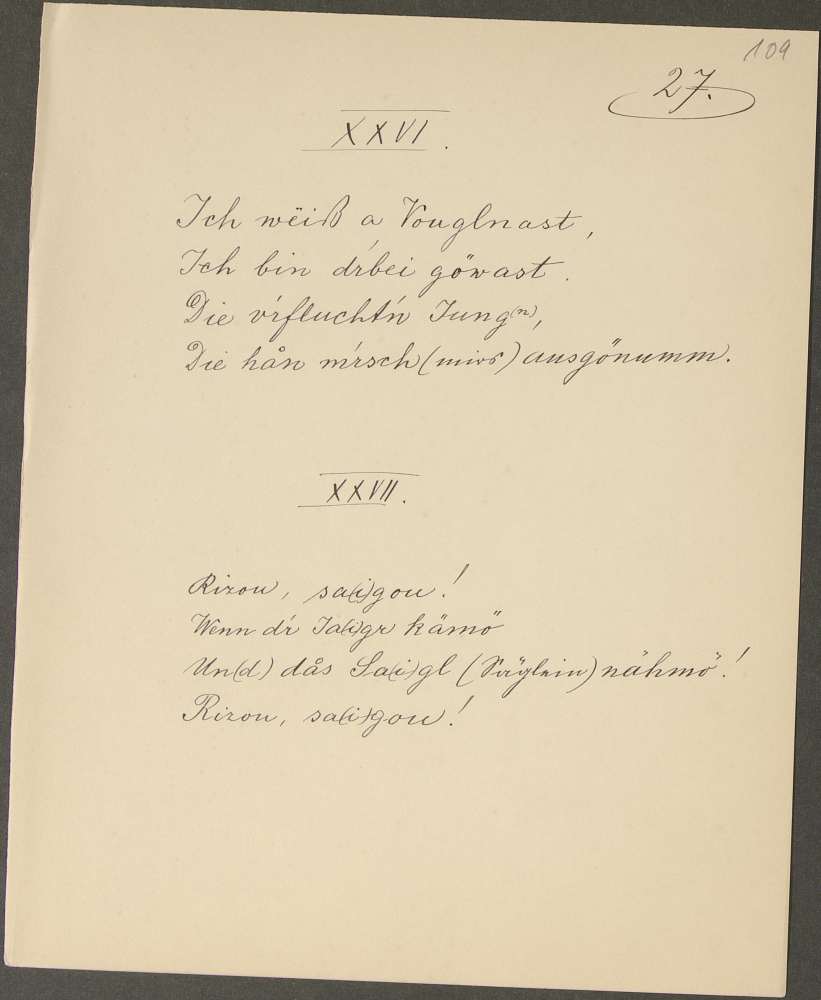 109
27.
XXVI.
Ich wëiß a Vouglnast,
Ich bin dŕbei göwast.
Die vŕfluchtń Jung(n),
Die hån mŕsch (mirs) ausgönumm.
XXVII.
Rizou, sa(i)gou!
Wenn dŕ Ja(i)gr kämö
Un(d) dås Sa(i)gl (Säglein) nähmö!
Rizou, sa(i)gou!